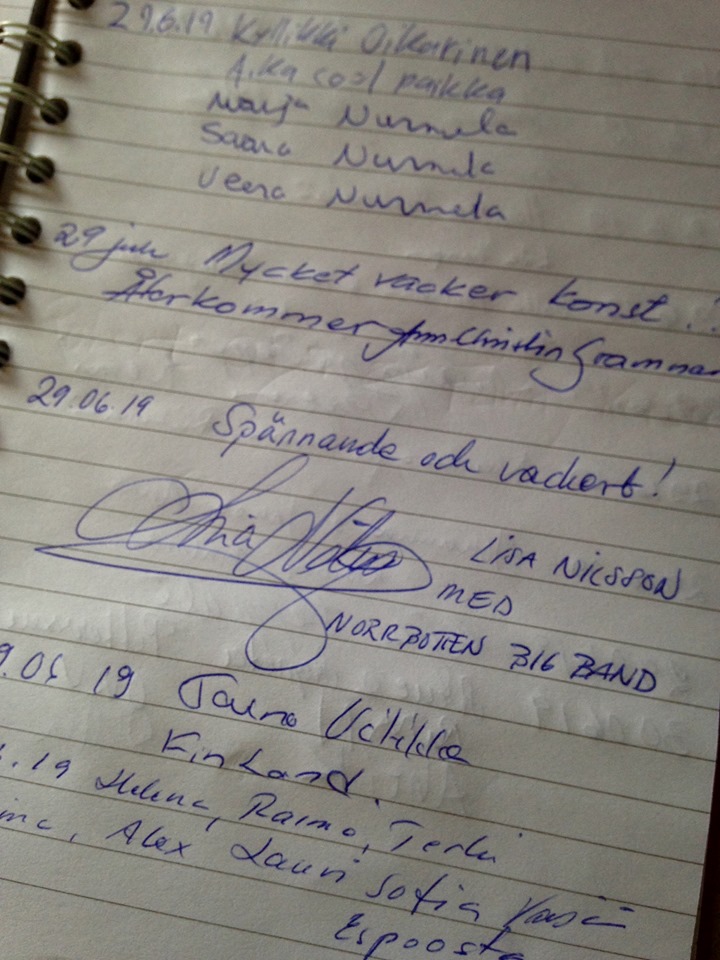 29.6.19 Kyllikki Oikarinen
Aika cool paikka
Marja Nurmela
Saara Nurmela
Veera Nurmela
29 juni Mycket vacker konst!
Återkommer Ann-Christin Gramman
29.06.19 Spännande och vackert!
LISA NILSSON
MED
NORRBOTTEN BIG BAND
19 Tauno
Finland.
.19 Helena, Raimo,
Alex Lauri Sofia
Espoosta